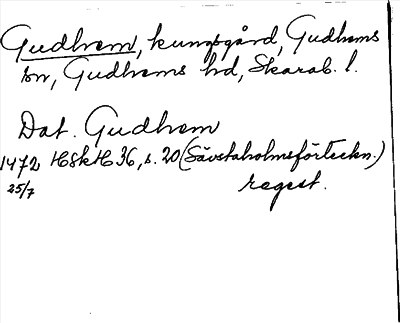 Gudhem, kungsgård, Gudhems
sn, Gudhems hd, Skarab. l.
Dat. Gudhem
1472 HSkH 36, s. 20 (Sävstaholmsförteckn.)
25/7 regest.